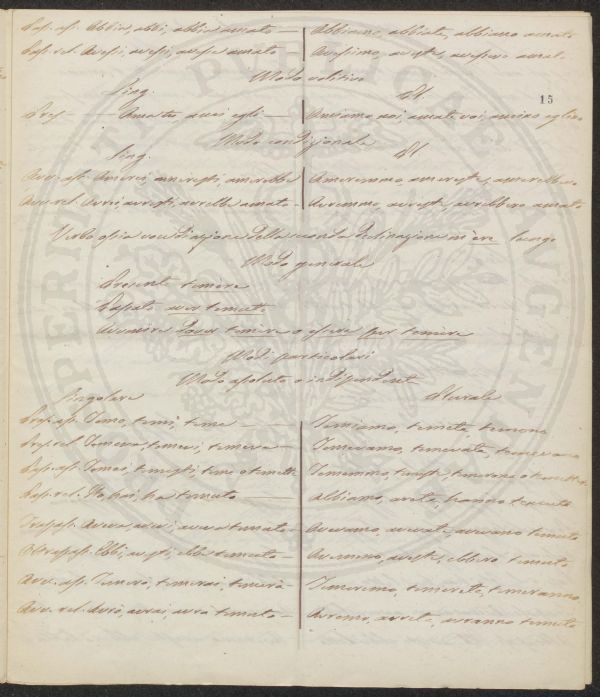 Pas. ass. Abbia, abbi, abbia amato — Abbiamo, abbiate, abbiano amato
Pas. rel. Avessi, avessi, avesse amato Avessimo, aveste, avessero amato
Modo volitivo
15
Sing. Pl.
Pres — Ama tu, ami egli — Amiamo noi, amate voi, amino eglino
Modo condizionale
Sing. Pl.
Avv. ass. Amerei, ameresti, amerebbe Ameremmo, amereste, amerebbero
Avv. rel. Avrei, avresti, avrebbe amato — Avremmo, avreste, avrebbero amato
Verbo ossia voce d'azione della seconda declinazione in ere lungo
Modo generale
Presente temere
Passato aver temuto
Avvenire dover temere o essere per temere
Modi particolari
Modo assoluto o indipendent
Singolare Plurale
Pres. ass. Temo, temi, teme — Temiamo, temete, temono
Pres. rel. Temeva, temevi, temeva — Temevamo, temevate, temevano
Pas. ass. Temei, temesti, temè o temette Tememmo, temeste, temerono o temettero
Pas. rel. Ho, hai, ha temuto — Abbiamo, avete, hanno temuto
Trapass. Aveva, avevi, aveva temuto — Avevamo, avevate, avevano temuto
Oltrepass. Ebbi, avesti, ebbe temuto — Avemmo, aveste, ebbero temuto
Avv. ass. Temerò, temerai, temerà Temeremo, temerete, temeranno
Avv. rel. Avrò, avrai, avrà temuto — Avremo, avrete, avranno temuto